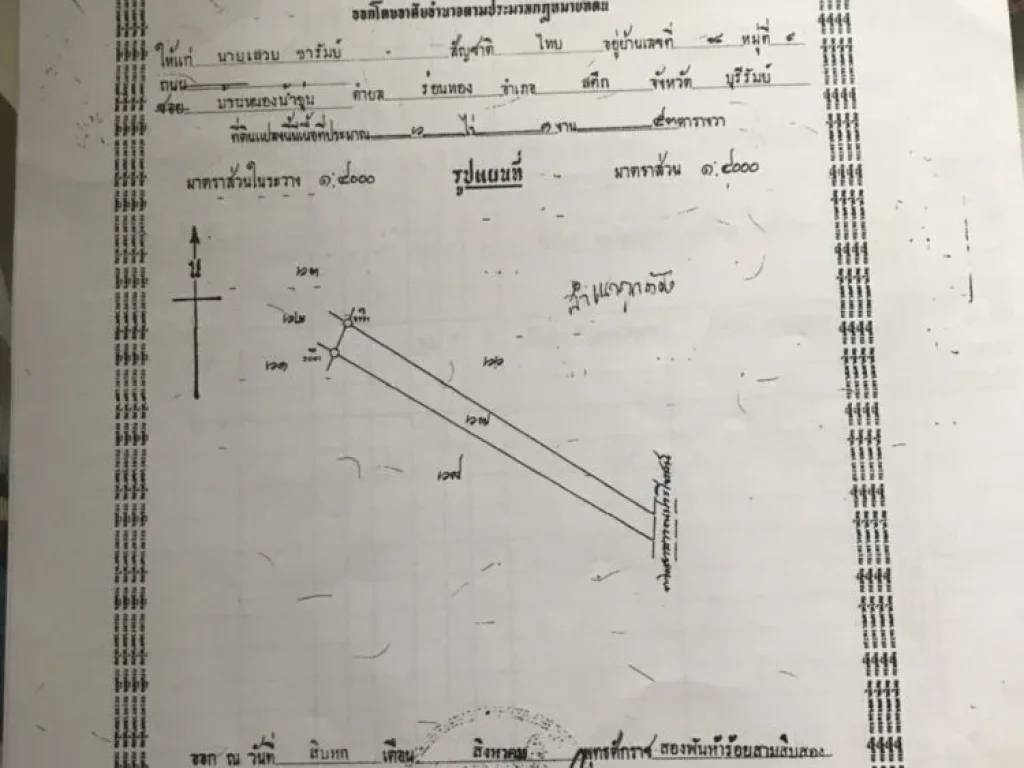 ออกโดยอาศัยอำนาจตามประมวลกฎหมายที่ดิน
ให้แก่ นายเสวย ชารัมย์ สัญชาติ ไทย อยู่บ้านเลขที่ ๖๘ หมู่ที่ ๙
ถนน
ซอย บ้านหนองน้ำขุ่น ตำบล ร่อนทอง อำเภอ สตึก จังหวัด บุรีรัมย์
ที่ดินแปลงนี้มีเนื้อที่ประมาณ ๖ ไร่ ๓ งาน ๕๓ ตารางวา
มาตราส่วนในระวาง ๑:๔๐๐๐ รูปแผนที่ มาตราส่วน ๑:๔๐๐๐
น
๖๓
๖๒
๖๑
๖๖
๖๗
๖๘
ทางสาธารณประโยชน์
ออก ณ วันที่ สิบหก เดือน สิงหาคม พุทธศักราช สองพันห้าร้อยสามสิบสอง